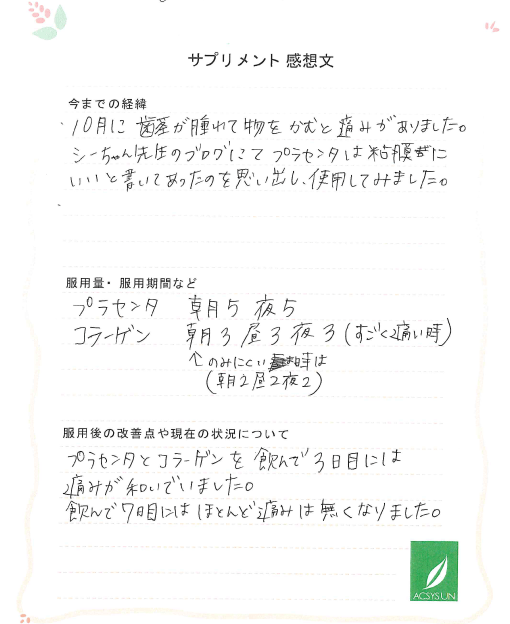 サプリメント 感想文
今までの経緯
10月に 歯茎が腫れて物をかむと痛みがありました。
シーちゃん先生のブログにて プラセンタは粘膜に
いいと書いてあったのを思い出し、使用してみました。
服用量・服用期間など
プラセンタ 朝5 夜5
コラーゲン 朝3 昼3 夜3 (すごく痛い時)
↑のみにくい時は
(朝2昼2夜2)
服用後の改善点や現在の状況について
プラセンタとコラーゲンを 飲んで3日目には
痛みが和いでいました。
飲んで7日目には ほとんど痛みは無くなりました。
ACSYSUN